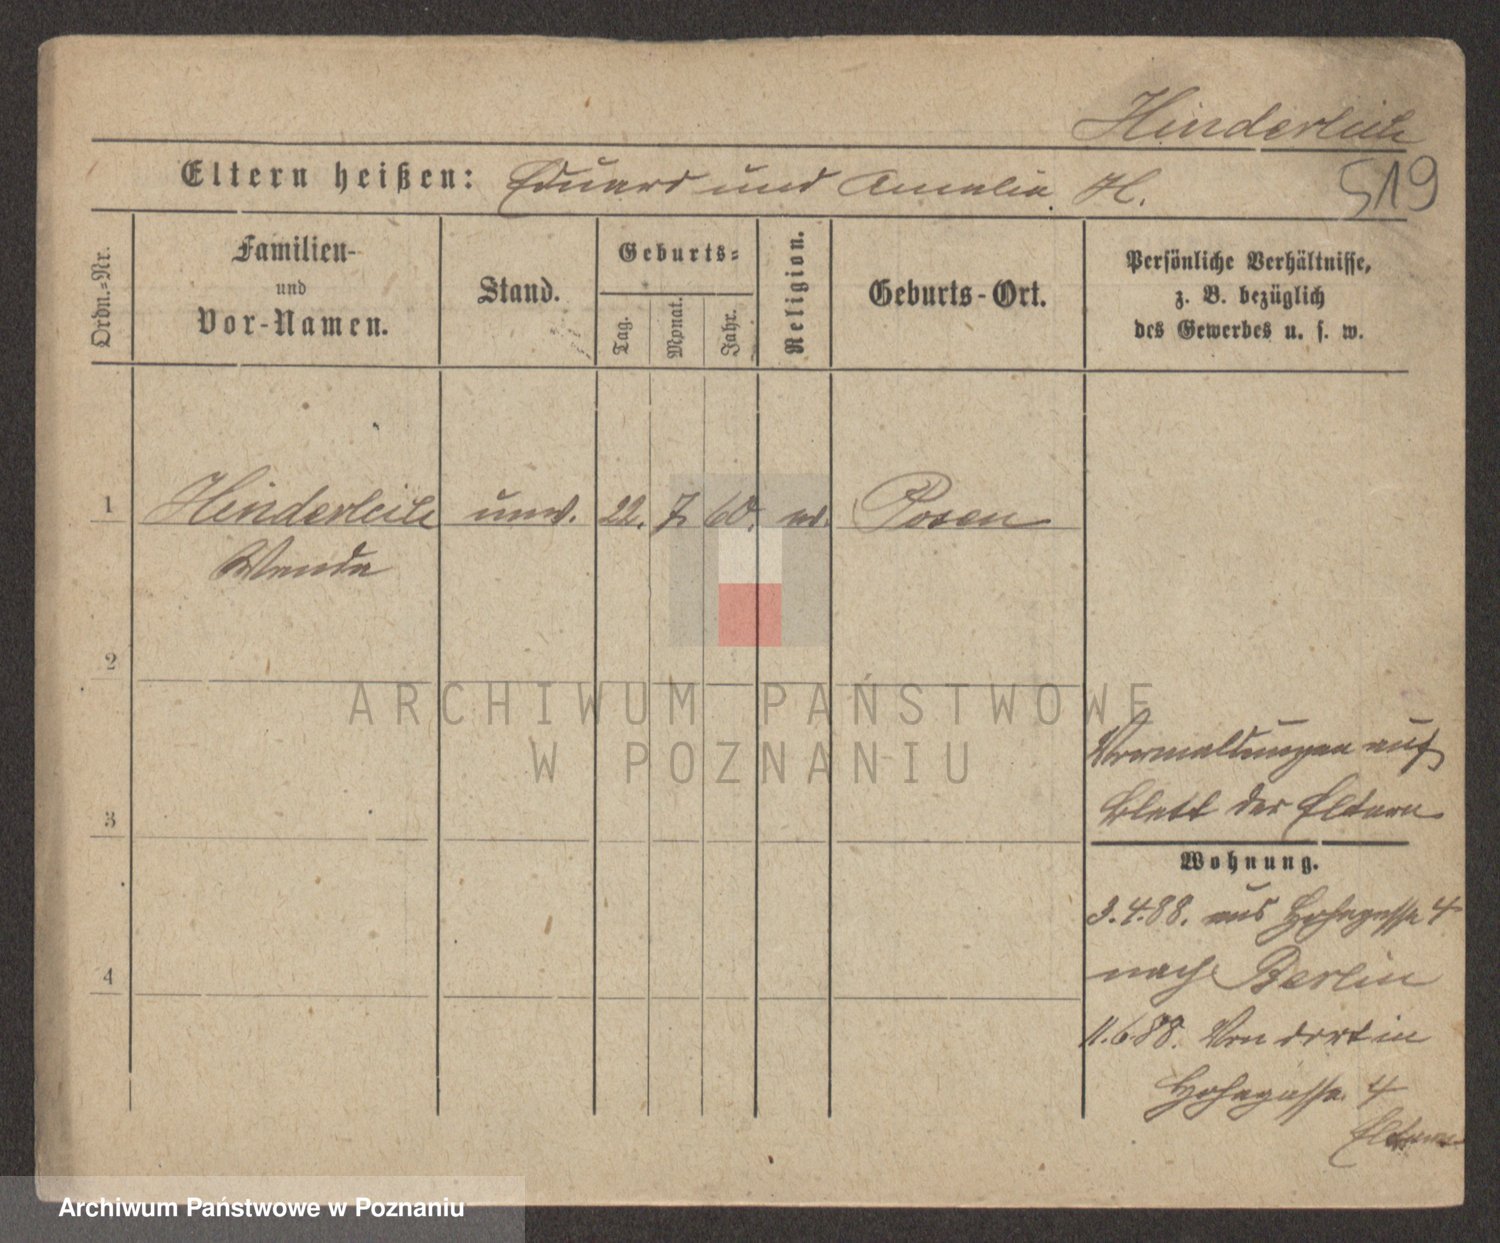 Hinderleih
Eltern heißen: Eduard und Amalia H.
519
Ordn.-Nr.
Familien-
und
Vor-Namen.
Stand.
Geburts-
Tag.
Monat.
Jahr.
Religion.
Geburts-Ort.
Persönliche Verhältnisse,
z. B. bezüglich
des Gewerbes u. s. w.
1 Hinderleih unv. 22. 7. 60. ev. Posen
Wanda
2
ARCHIWUM PAŃSTWOWE
W POZNANIU
Anmeldungen auf
3 Blatt der Eltern
Wohnung.
3.4.88. aus Hohegasse 4
4 nach Berlin
11.6.88. Von dort in
Hohegasse 4
Eltern
Archiwum Państwowe w Poznaniu